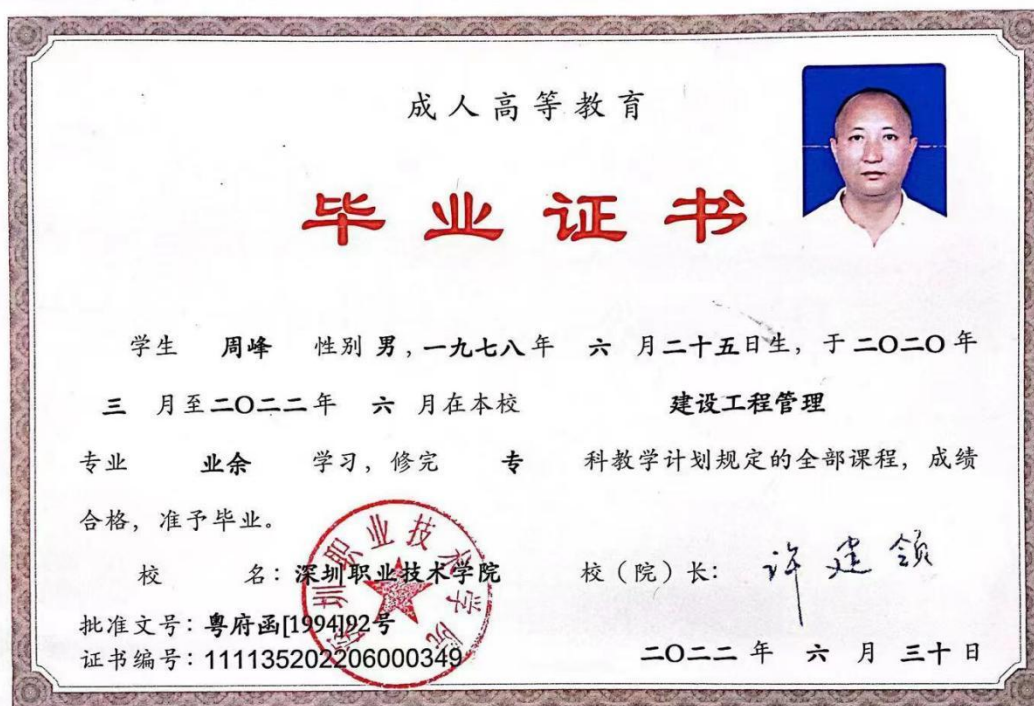 成人高等教育
毕业证书
学生 周峰 性别 男，一九七八年 六 月二十五日生，于 二〇二〇年
三 月至二〇二二年 六 月在本校 建设工程管理
专业 业余 学习，修完 专 科教学计划规定的全部课程，成绩
合格，准予毕业。
校 名：深圳职业技术学院
校（院）长：许建领
批准文号：粤府函[1994]92号
证书编号：111135202206000349
二〇二二 年 六 月 三十 日
深圳职业技术学院